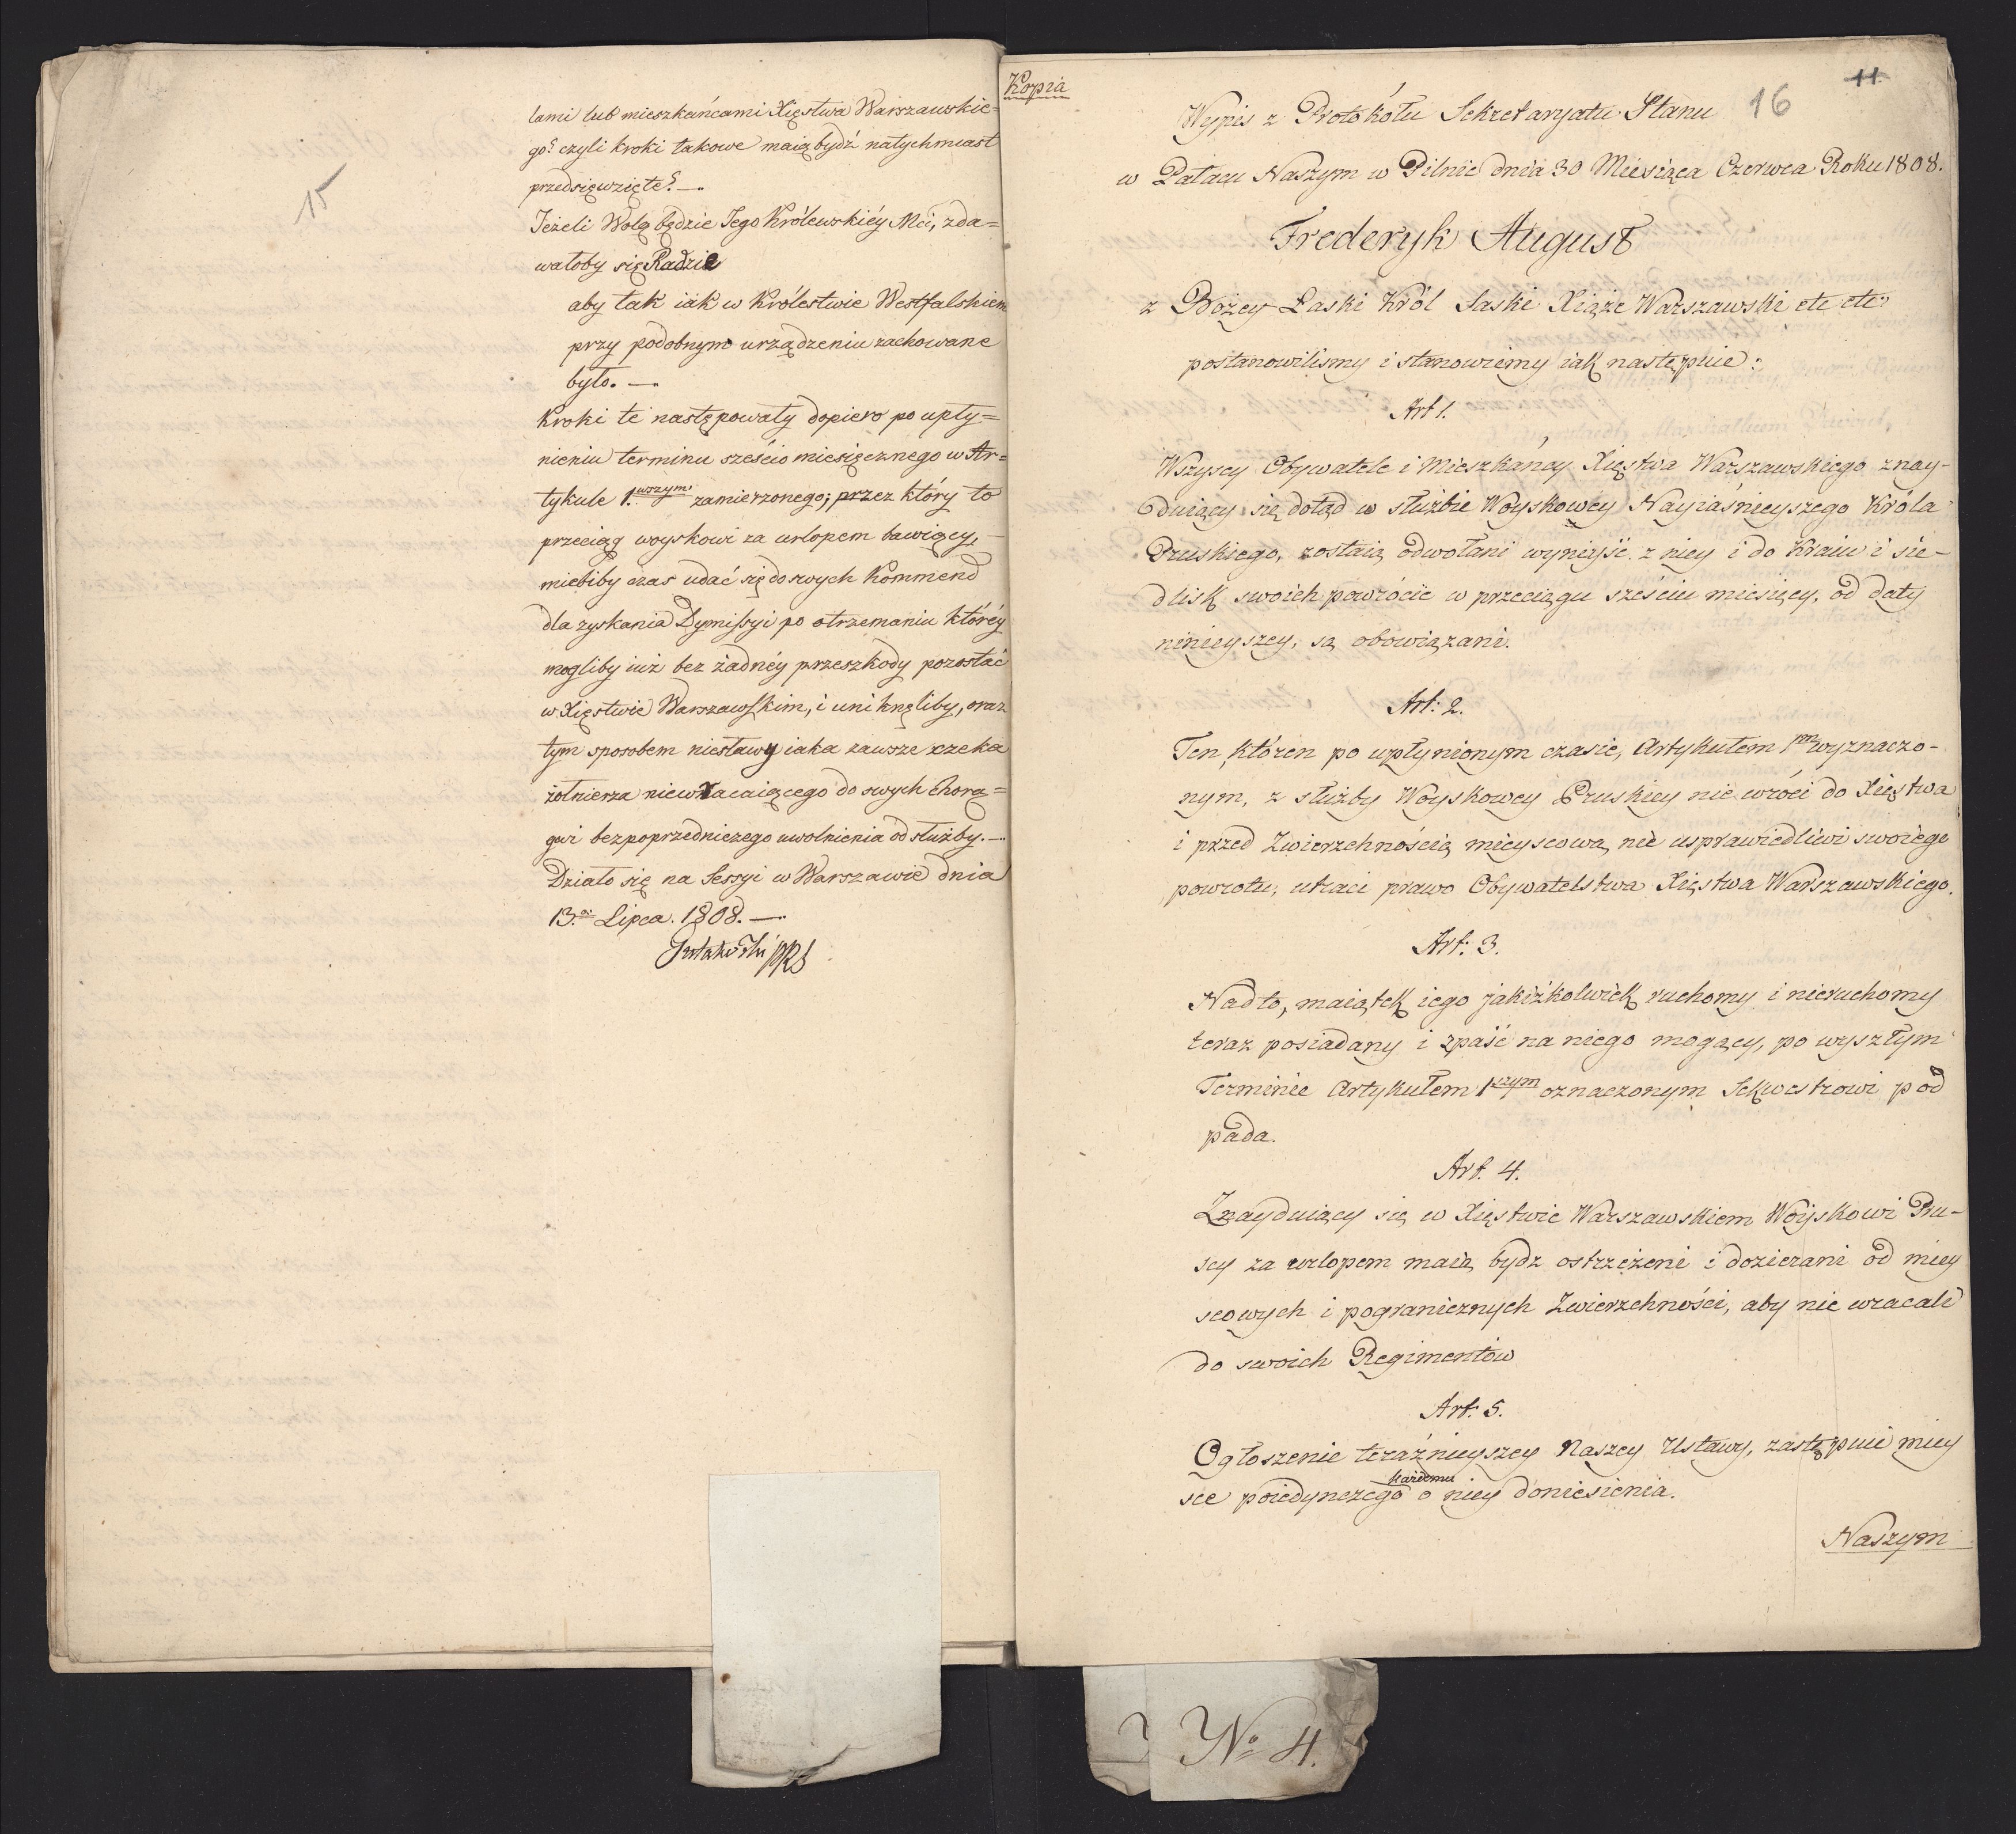 15
lami lub mieszkańcami Xięstwa Warszawskie=
go? czyli kroki takowe maią bydź natychmiast
przedsięwzięte? —.
Jeżeli Wolą będzie Jego Królewskiéy Mci, zda=
wałoby się Radzie
aby tak iak w Królestwie Westfalskiem
przy podobnym urządzeniu zachowane
było. —.
Kroki te następowały dopiero po upły=
nieniu terminu sześcio miesięcznego w Ar=
tykule 1.wszym zamierzonego; przez który to
przeciąg woyskowi za urlopem bawiący,
mieliby czas udać się do swych Kommend
dla zyskania Dymissyi po otrzemaniu któréy
mogliby iuż bez żadnéy przeszkody pozostać
w Xięstwie Warszawskim, i uniknęliby, oraz
tym sposobem niesławy iaka zawsze czeka
żołnierza niewracaiącego do swych Chorą=
gwi bez poprzedniczego uwolnienia od służby. —.
Działo się na Sessyi w Warszawie dnia
13.go Lipca. 1808. —.
Kopia
11.
16
Wypis z Protokółu Sekretaryatu Stanu
w Pałacu Naszym w Pilnic dnia 30 Miesiąca Czerwca Roku 1808.
Frederyk August
z Bożey Łaski Król Saski Xiąże Warszawski etc etc:
postanowilismy i stanowiemy iak następuie:
Art 1.
Wszyscy Obywatele i Mieszkańcy Xięstwa Warszawskiego znay-
duiący się dotąd w służbie Woyskowey Nayiaśnieyszego Króla
Pruskiego, zostaią odwołani wyniyść z niey i do Kraiu i sie-
dlisk swoich powrócić w przeciągu sześciu miesięcy, od daty
ninieyszey, są obowiązani.
Art: 2.
Ten, któren po upłynionym czasie, Artykułem 1m wyznaczo-
nym, z służby Woyskowey Pruskiey nie wróci do Xięstwa
i przed Zwierzchnością mieyscową nie usprawiedliwi swoiego
powrotu, utraci prawo Obywatelstwa Xięstwa Warszawskiego.
Art: 3.
Nadto, maiątek iego jakiżkolwiek ruchomy i nieruchomy
teraz posiadany i spaść na niego mogący, po wyszłym
Terminie Artykułem 1szym oznaczonym Sekwestrowi pod
pada.
Art. 4.
Znayduiący się w Xięstwie Warszawskiem Woyskowi Pru-
scy za urlopem maią bydz ostrzeżeni i dozierani od miey
scowych i pogranicznych Zwierzchności, aby nie wracali
do swoich Regimentów
Art: 5.
Ogłoszenie teraźnieyszey Naszey Ustawy, zastąpui miey
każdemu
sce poiedynczego o niey doniesienia.
Naszym
No 4.